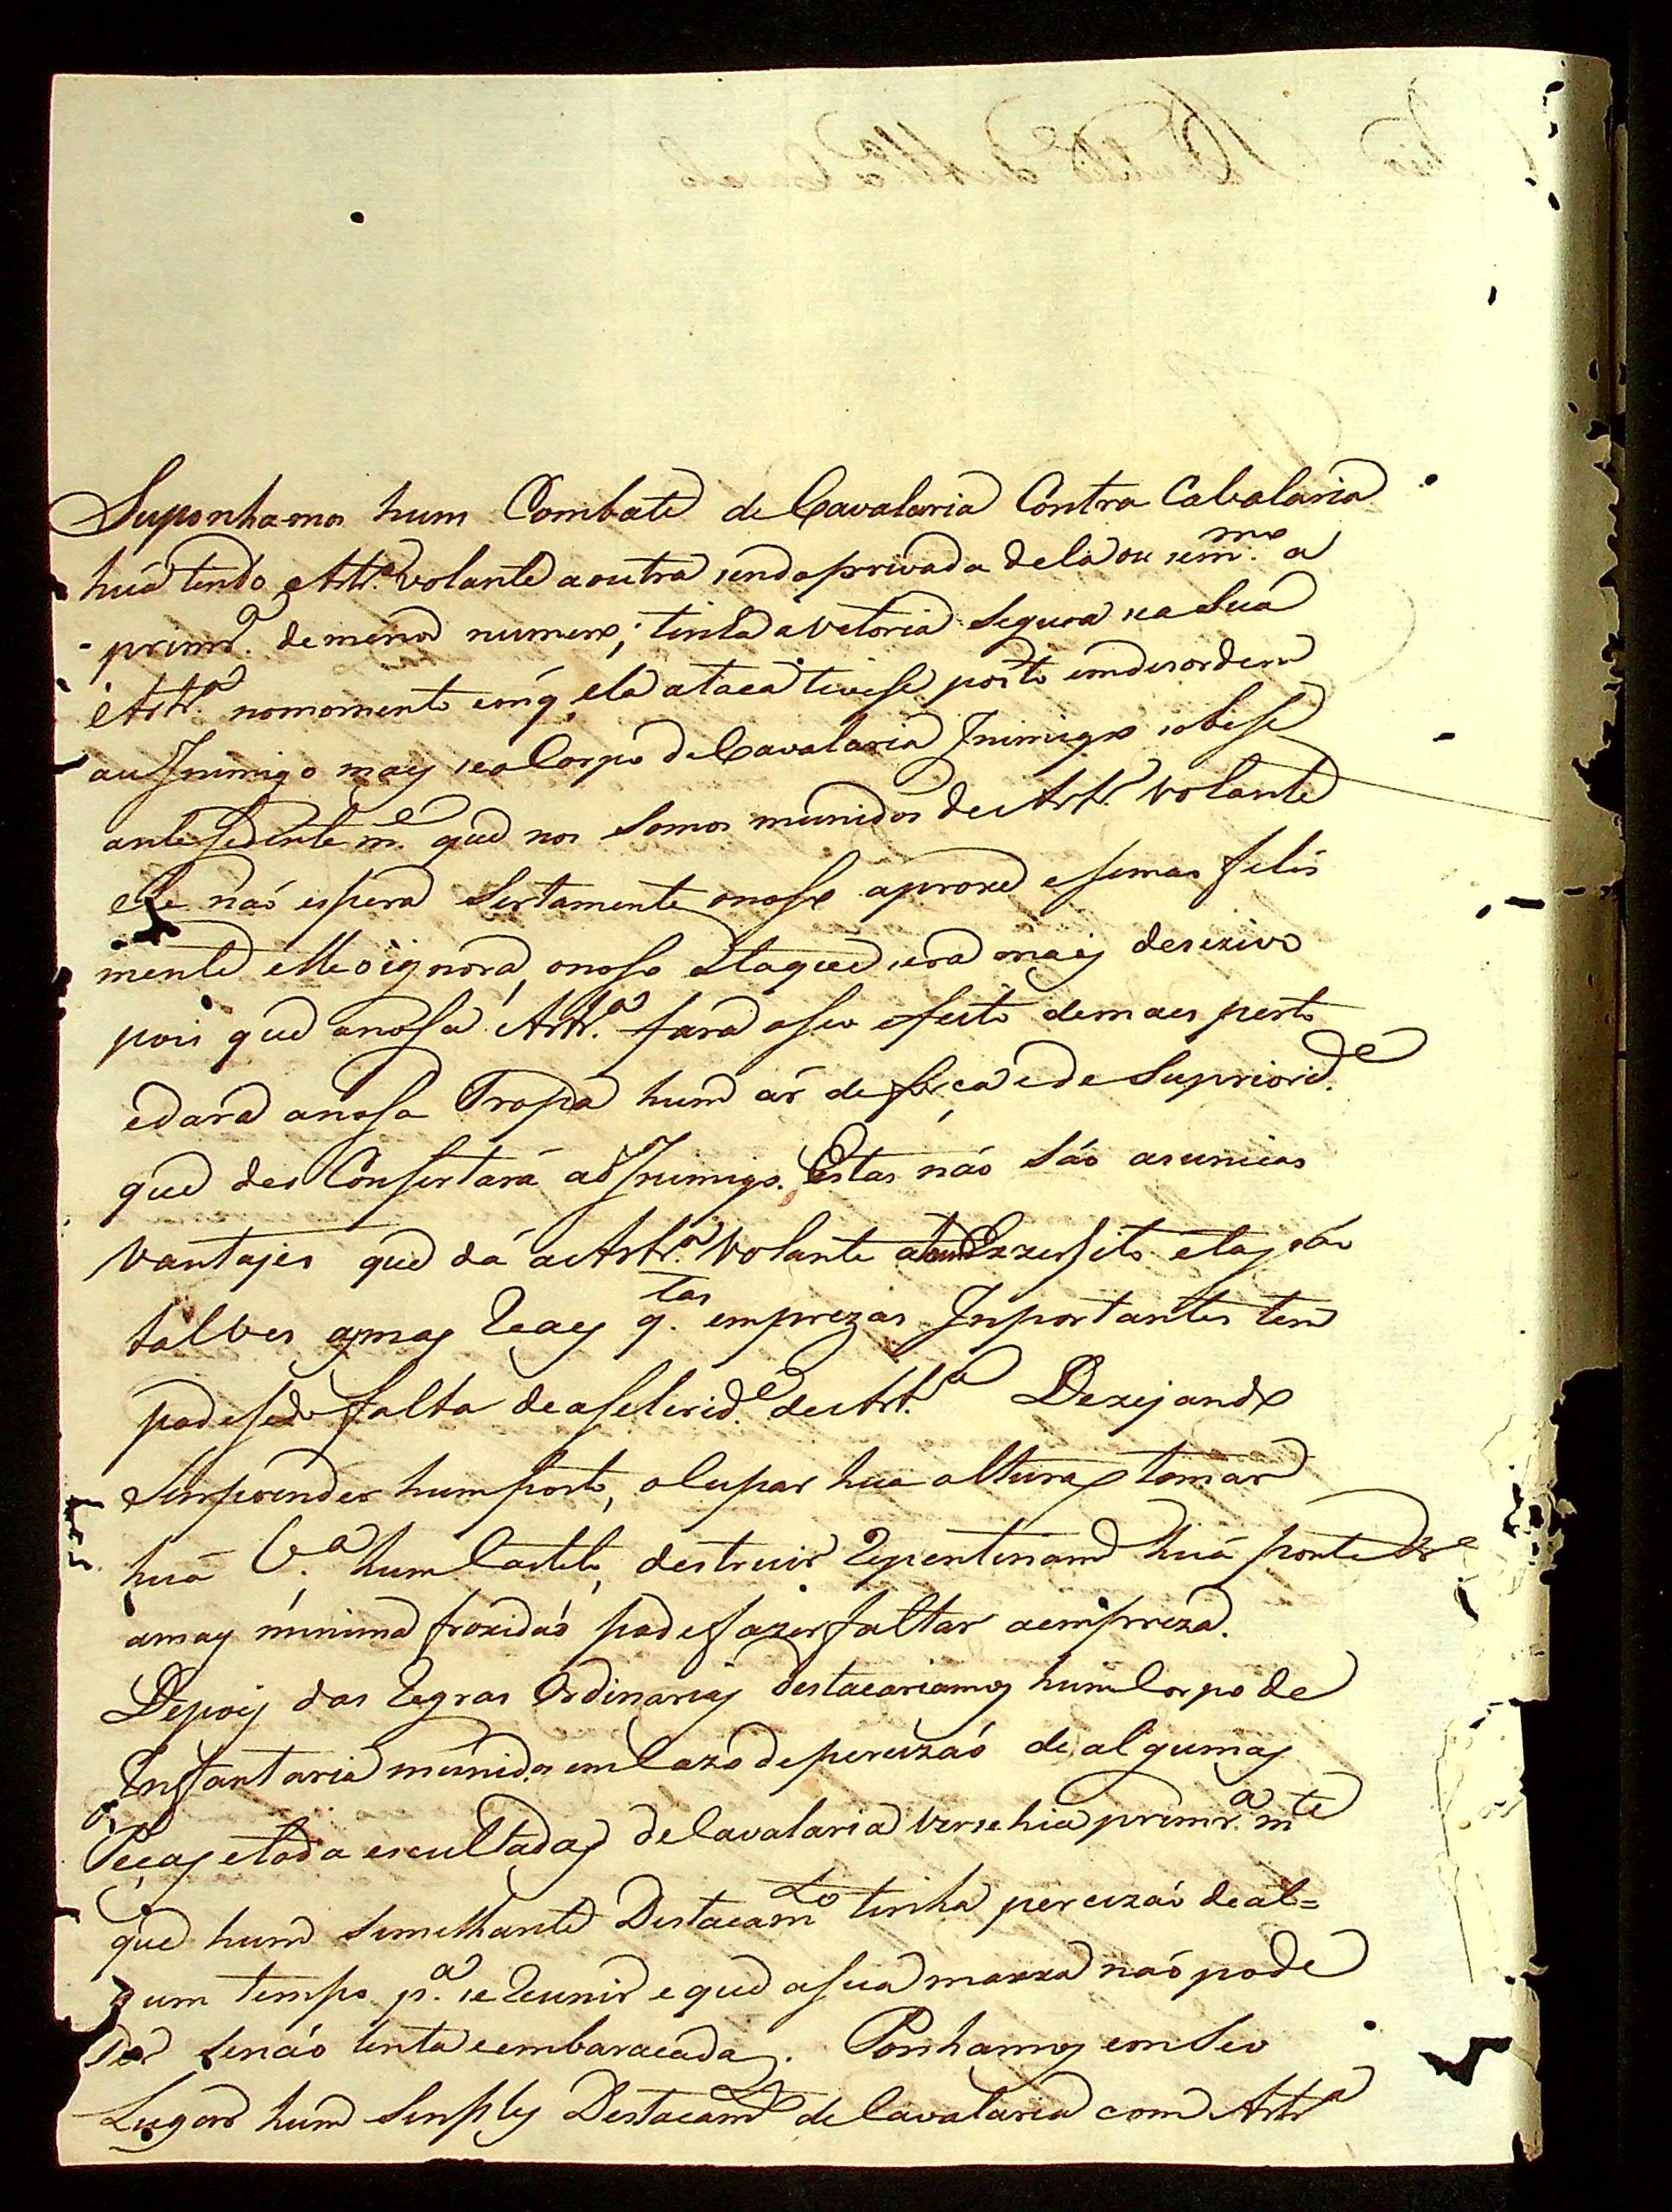 Suponhamos hum Combate de Cavalaria Contra Cabalaria
huá tendo Artr.ª volante a outra sendo privada dela ou sem.mo a
prim.rª de menos numero; tinha a vetoria segura se a Sua
Artr.ª no momento em q ela ataca tivese posto em desordem
au Inimigo may se o Corpo de Cavalaria Inimigo sobese
antesedentem.e que nos somos munidos de Artr.ª volante
ele náo espera Sertamente o noso aproxe e se mas felis
mente elle o ignora, o noso Ataque sera may desezivo
pois que a nosa Artr.ª fara o seu efeito de maes perto
e dara a nosa Tropa hum ár de força e de Supriorid.e
que des Consertará ao Inimigo. Estas náo Sáo as unicas
vantajes que dá a Artr.ª Volante a hum Exzersito elas sáo
talves as may Reaes q.tas emprezas Inportantes tem
padesedo falta de aselerid.e de Art.ª Dezejando
Surprender hum posto, ocupar hua altura, tomar
huá V.ª hum Castelo, destruir Repentinam.e huá ponte &e
a may minima froxidáo pode fazer faltar a empreza.
Depois das Regras Ordinarias destacariamos hum Corpo de
Infantaria munido em Cazo de percizáo de algumas
Peças e toda escultadas de Cavalaria verse hia primr.ª m.te
que hum Semelhante Destacam.to tinha percizáo de al=
gum tempo p.ª se Reunir e que a sua marxa náo pode
ser senáo lenta e embaracada. Ponhamos em Seo
Lugar hum Simples Destacam.to de Cavalaria com Artr.ª